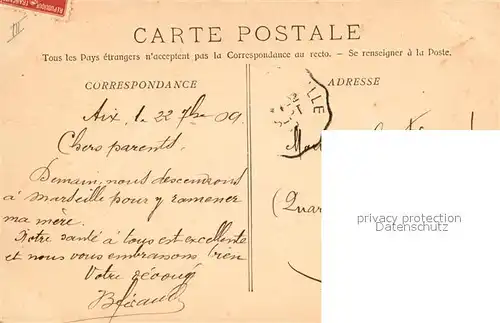 RÉPUBLIQUE FRANÇAISE
III
CARTE POSTALE
Tous les Pays étrangers n'acceptent pas la Correspondance au recto. — Se renseigner à la Poste.
CORRESPONDANCE
ADRESSE
Aix, le 22 7bre 09.
Chers parents.
Demain, nous descendrons
à Marseille pour y ramener
ma mère.
Notre santé à tous est excellente
et nous vous embrassons bien
Votre
LLE
(Quar
privacy protection
Datenschutz